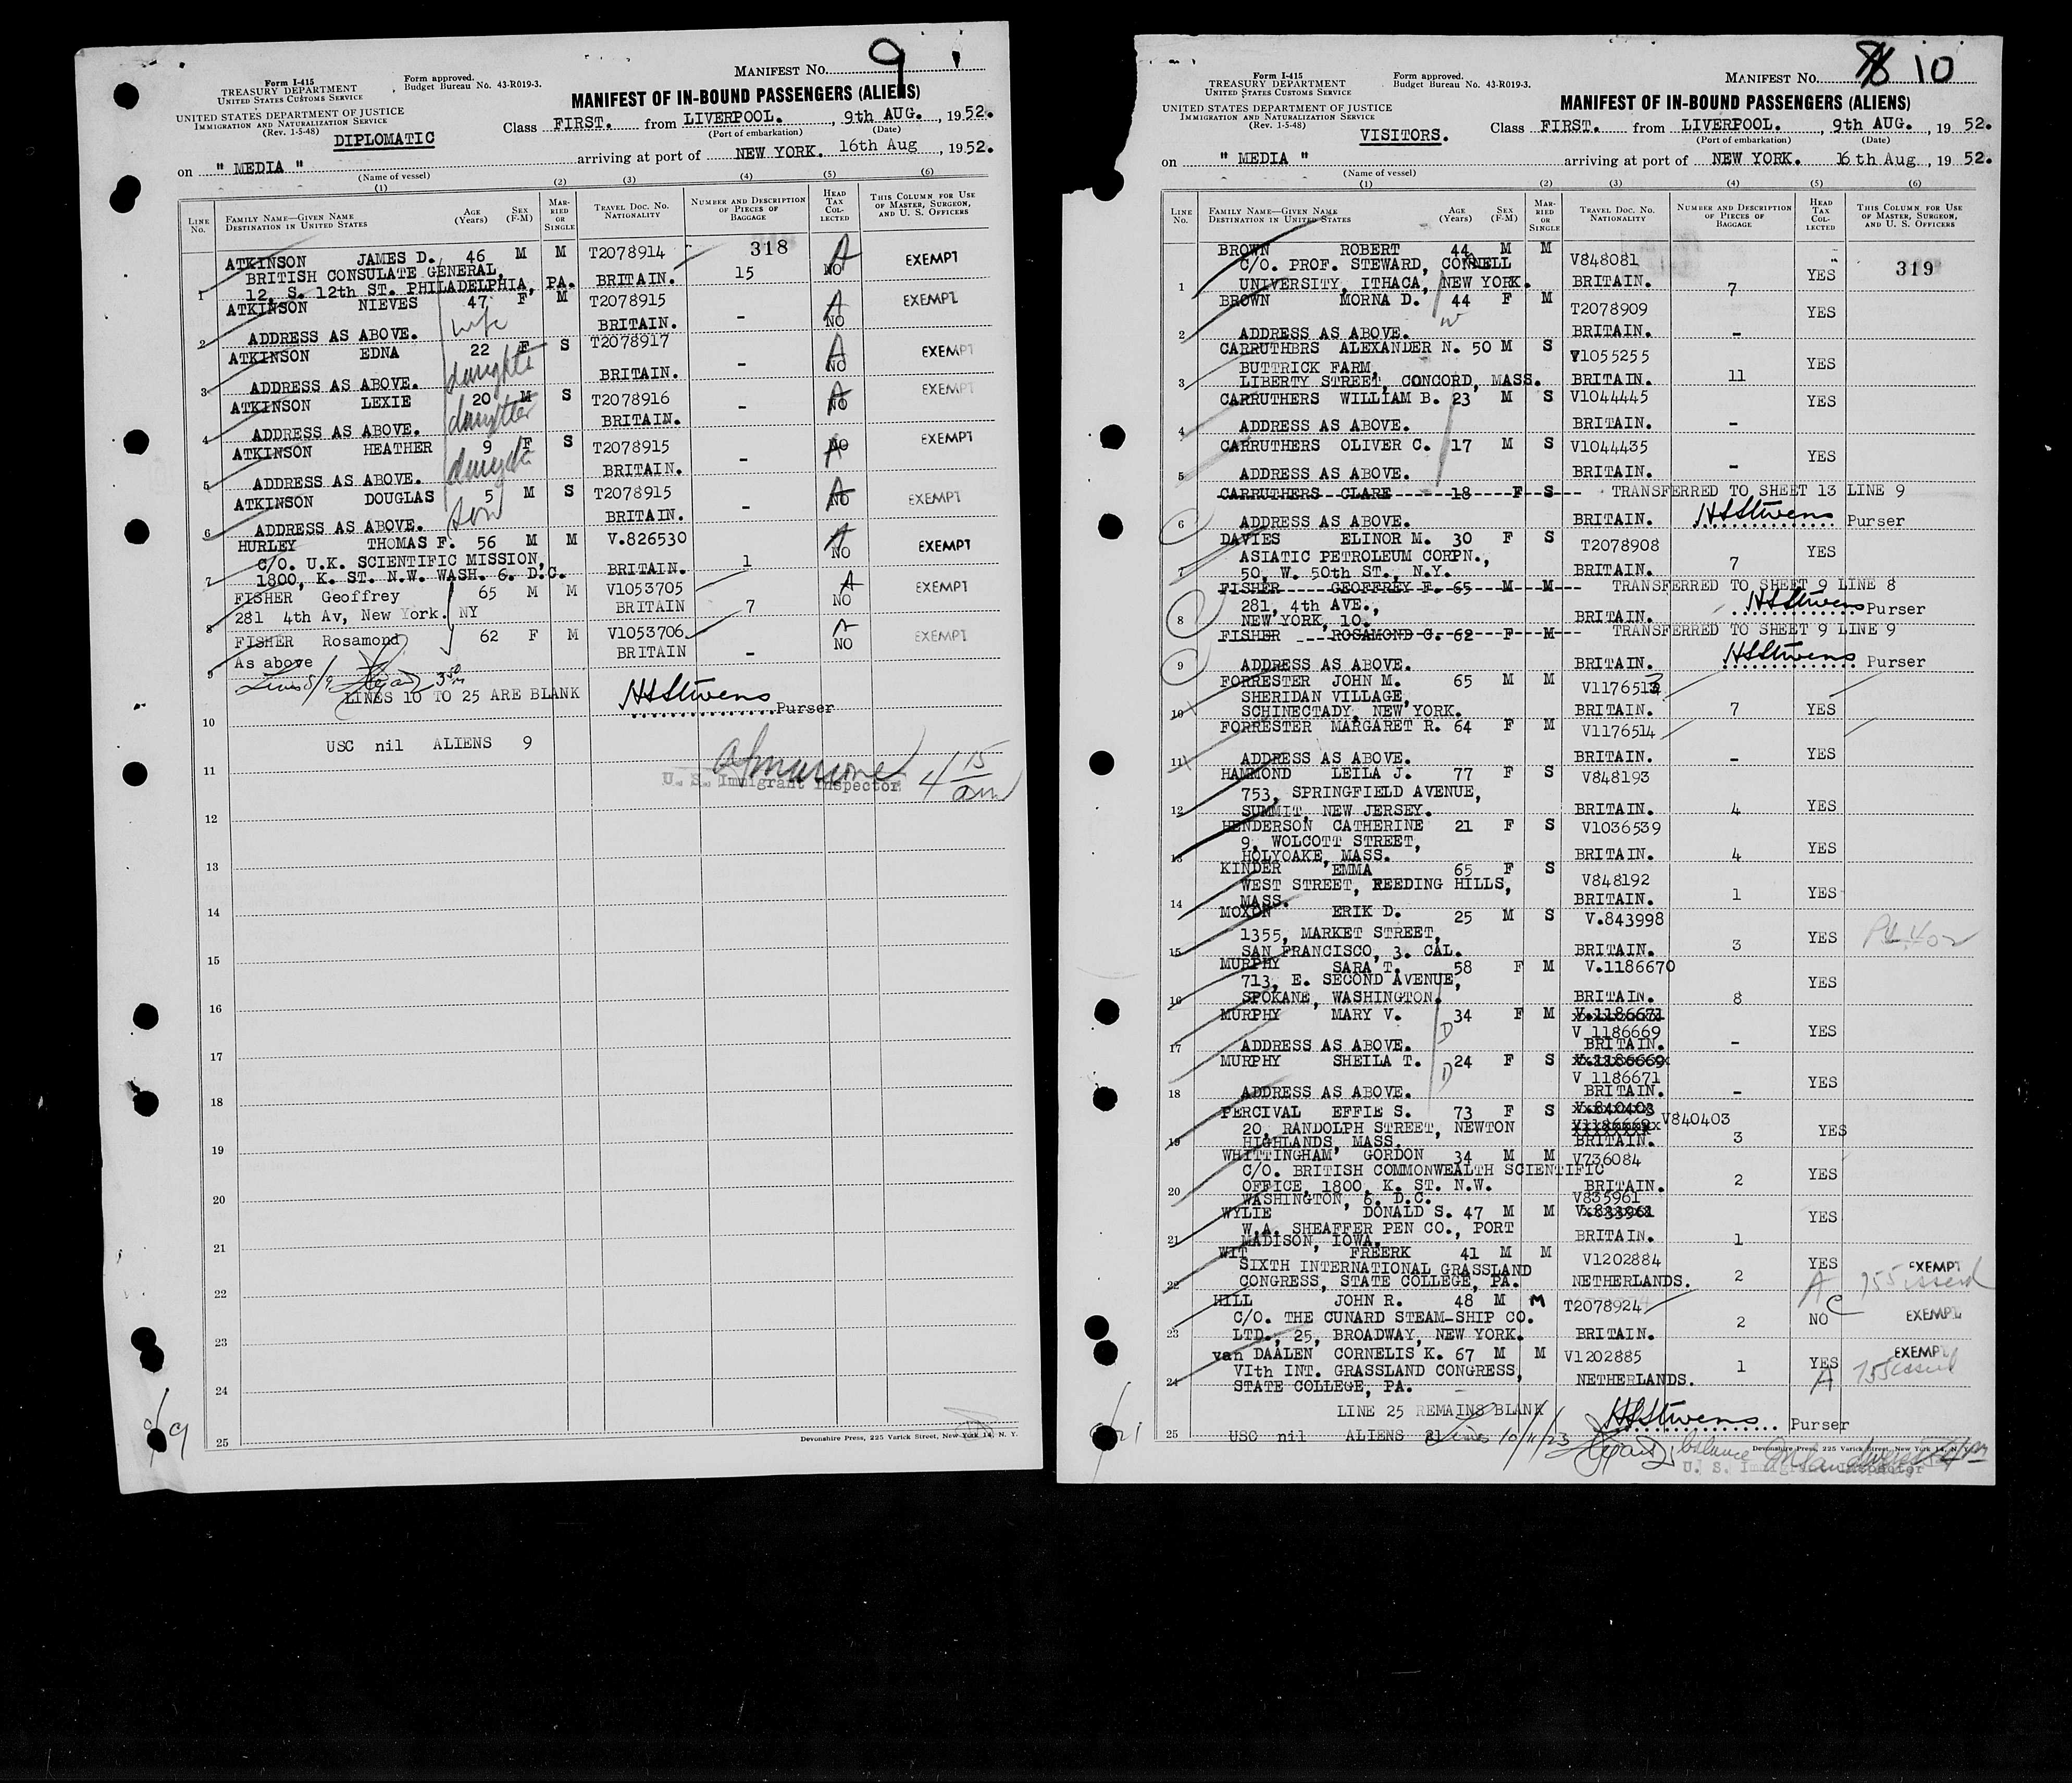 MANIFEST No. 9
Form I-415
TREASURY DEPARTMENT
UNITED STATES CUSTOMS SERVICE
Form approved.
Budget Bureau No. 43-R019-3.
UNITED STATES DEPARTMENT OF JUSTICE
IMMIGRATION AND NATURALIZATION SERVICE
(Rev. 1-5-48)
DIPLOMATIC
MANIFEST OF IN-BOUND PASSENGERS (ALIENS)
Class FIRST. from LIVERPOOL. , 9th AUG. , 1952.
(Port of embarkation) (Date)
on " MEDIA " arriving at port of NEW YORK. 16th Aug , 1952.
(Name of vessel)
(1) (2) (3) (4) (5) (6)
LINE No. FAMILY NAME—GIVEN NAME DESTINATION IN UNITED STATES AGE (Years) SEX (F-M) MARRIED OR SINGLE TRAVEL DOC. NO. NATIONALITY NUMBER AND DESCRIPTION OF PIECES OF BAGGAGE HEAD TAX COLLECTED THIS COLUMN FOR USE OF MASTER, SURGEON, AND U. S. OFFICERS
318
ATKINSON JAMES D. 46 M M T2078914 A EXEMPT
BRITISH CONSULATE GENERAL, BRITAIN. 15 NO
1 12, S. 12th ST. PHILADELPHIA, PA.
ATKINSON NIEVES 47 F M T2078915 A EXEMPT
wife BRITAIN. - NO
2 ADDRESS AS ABOVE.
ATKINSON EDNA 22 F S T2078917 A EXEMPT
daughte BRITAIN. - NO
3 ADDRESS AS ABOVE.
ATKINSON LEXIE 20 M S T2078916 A EXEMPT
daughter BRITAIN. - NO
4 ADDRESS AS ABOVE.
ATKINSON HEATHER 9 F S T2078915 NO EXEMPT
BRITAIN. - A
5 ADDRESS AS ABOVE.
ATKINSON DOUGLAS 5 M S T2078915 A EXEMPT
son BRITAIN. - NO
6 ADDRESS AS ABOVE.
HURLEY THOMAS F. 56 M M V.826530 A EXEMPT
C/O. U.K. SCIENTIFIC MISSION, BRITAIN. 1 NO
7 1800, K. ST. N.W. WASH. 6. D.C.
FISHER Geoffrey 65 M M V1053705 A EXEMPT
281 4th Av, New York. NY BRITAIN 7 NO
8
FISHER Rosamond 62 F M V1053706 A EXEMPT
As above BRITAIN - NO
9
Lines 8/9
LINES 10 TO 25 ARE BLANK HSStivens Purser
10
USC nil ALIENS 9
11 U. S. Immigrant Inspector 4 15 am
12
13
14
15
16
17
18
19
20
21
22
23
24
25
9
Devonshire Press, 225 Varick Street, New York 14, N. Y.
MANIFEST No. 10
Form I-415
TREASURY DEPARTMENT
UNITED STATES CUSTOMS SERVICE
Form approved.
Budget Bureau No. 43-R019-3.
UNITED STATES DEPARTMENT OF JUSTICE
IMMIGRATION AND NATURALIZATION SERVICE
(Rev. 1-5-48)
VISITORS.
MANIFEST OF IN-BOUND PASSENGERS (ALIENS)
Class FIRST. from LIVERPOOL. , 9th AUG. , 1952.
(Port of embarkation) (Date)
on " MEDIA " arriving at port of NEW YORK. 16th Aug , 1952.
(Name of vessel)
(1) (2) (3) (4) (5) (6)
LINE No. FAMILY NAME—GIVEN NAME DESTINATION IN UNITED STATES AGE (Years) SEX (F-M) MARRIED OR SINGLE TRAVEL DOC. NO. NATIONALITY NUMBER AND DESCRIPTION OF PIECES OF BAGGAGE HEAD TAX COLLECTED THIS COLUMN FOR USE OF MASTER, SURGEON, AND U. S. OFFICERS
319
BROWN ROBERT 44 M M V848081
C/O. PROF. STEWARD, CORNELL YES
1 UNIVERSITY, ITHACA, NEW YORK. BRITAIN. 7
BROWN MORNA D. 44 F M T2078909 YES
w
2 ADDRESS AS ABOVE. BRITAIN. -
CARRUTHERS ALEXANDER N. 50 M S V1055255
BUTTRICK FARM, YES
3 LIBERTY STREET, CONCORD, MASS. BRITAIN. 11
CARRUTHERS WILLIAM B. 23 M S V1044445 YES
4 ADDRESS AS ABOVE. BRITAIN. -
CARRUTHERS OLIVER C. 17 M S V1044435 YES
5 ADDRESS AS ABOVE. BRITAIN. -
CARRUTHERS CLARE 18 F S TRANSFERRED TO SHEET 13 LINE 9
6 ADDRESS AS ABOVE. BRITAIN. HSStivens Purser
DAVIES ELINOR M. 30 F S T2078908
ASIATIC PETROLEUM CORPN., YES
7 50, W. 50th ST., N.Y. BRITAIN. 7
FISHER GEOFFREY F. 65 M M TRANSFERRED TO SHEET 9 LINE 8
281, 4th AVE., HSStivens Purser
8 NEW YORK, 10. BRITAIN.
FISHER ROSAMOND C. 62 F M TRANSFERRED TO SHEET 9 LINE 9
9 ADDRESS AS ABOVE. BRITAIN. HSStivens Purser
FORRESTER JOHN M. 65 M M V1176513
SHERIDAN VILLAGE,
10 SCHINECTADY, NEW YORK. BRITAIN. 7 YES
FORRESTER MARGARET R. 64 F M V1176514
11 ADDRESS AS ABOVE. BRITAIN. - YES
HAMMOND LEILA J. 77 F S V848193
753, SPRINGFIELD AVENUE,
12 SUMMIT, NEW JERSEY. BRITAIN. 4 YES
HENDERSON CATHERINE 21 F S V1036539
9, WOLCOTT STREET,
13 HOLYOAKE, MASS. BRITAIN. 4 YES
KINDER EMMA 65 F S V848192
WEST STREET, REEDING HILLS,
14 MASS. BRITAIN. 1 YES
MOXON ERIK D. 25 M S V.843998
1355, MARKET STREET, YES
15 SAN FRANCISCO, 3. CAL. BRITAIN. 3
MURPHY SARA T. 58 F M V.1186670
713, E. SECOND AVENUE, YES
16 SPOKANE, WASHINGTON. BRITAIN. 8
MURPHY MARY V. 34 F M V.1186671
D V 1186669 YES
17 ADDRESS AS ABOVE. BRITAIN. -
MURPHY SHEILA T. 24 F S V.1186669
D V 1186671 YES
18 ADDRESS AS ABOVE. BRITAIN. -
PERCIVAL EFFIE S. 73 F S V.840403
20, RANDOLPH STREET, NEWTON V1186669 V840403 YES
19 HIGHLANDS, MASS. BRITAIN. 3
WHITTINGHAM GORDON 34 M M V736084
C/O. BRITISH COMMONWEALTH SCIENTIFIC YES
20 OFFICE, 1800, K. ST. N.W. BRITAIN. 2
WASHINGTON, 6. D.C. V835961
WYLIE DONALD S. 47 M M V.833961 YES
W.A. SHEAFFER PEN CO., PORT
21 MADISON, IOWA. BRITAIN. 1
WIT FREERK 41 M M V1202884 YES EXEMPT
SIXTH INTERNATIONAL GRASSLAND
22 CONGRESS, STATE COLLEGE, PA. NETHERLANDS. 2 A 755 issued
HILL JOHN R. 48 M M T2078924 C
C/O. THE CUNARD STEAM-SHIP CO. 2 NO EXEMPT
23 LTD., 25, BROADWAY, NEW YORK. BRITAIN.
van DAALEN CORNELIS K. 67 M M V1202885 EXEMPT
VIth INT. GRASSLAND CONGRESS, 1 YES 755 issued
24 STATE COLLEGE, PA. NETHERLANDS. A
LINE 25 REMAINS BLANK HSStivens Purser
25 USC nil ALIENS 21 Lines 10/11/23 balance
Devonshire Press, 225 Varick Street, New York 14, N. Y.
U. S. Immigrant Inspector